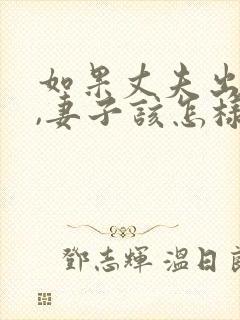 如果丈夫出
,妻子該怎樣
鄧志輝 溫日良